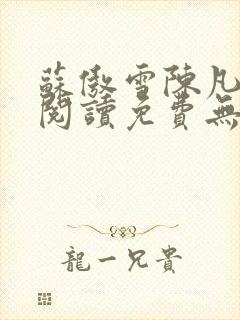 蘇傲雪陳凡
閱讀免費無
龍一兄貴